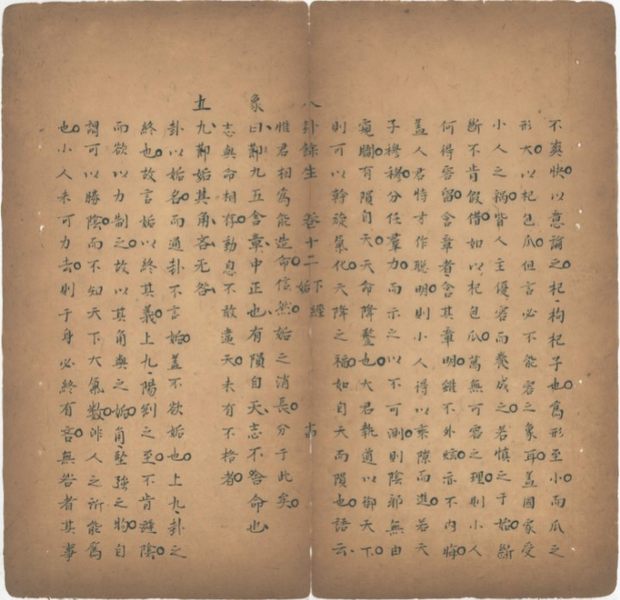 不爽快以意論之杞枸杞子也為形至小而瓜之
形大以杞包瓜但言必不能容之象耳蓋國家受
小人之禍皆人主優容而養成之若慎之于始斷
斷不肯假借如以杞包瓜萬無可容之理則小人
何得容留含章者含其章明雖不外炫示不内晦
蓋人君恃才作聰明則小人得以乘隙而進若天
子穆穆分任羣力而示之以不可測則陰邪無由
窺瞷有隕自天天命降鑒也大君執道以御天下
則可以幹旋氣化天降之福如自天而隕也語云
八卦餘生 卷十二 下經 姤 十四
惟君相為能造命信然姤之消長分于此矣
象曰九五含章中正也有隕自天志不舍命也
志與命相存動息不敢違天未有不格者
上九姤其角吝无咎
卦以姤名而通卦不言姤蓋不欲姤也上九卦之
終也故言姤以終其義上九陽剛之至不肯隨陰
而欲以力制之故以其角與之姤角堅強之物自
謂可以勝陰而不知天下大氣數非人之所能為
也小人未可力去則于身必終有吝無若者其事